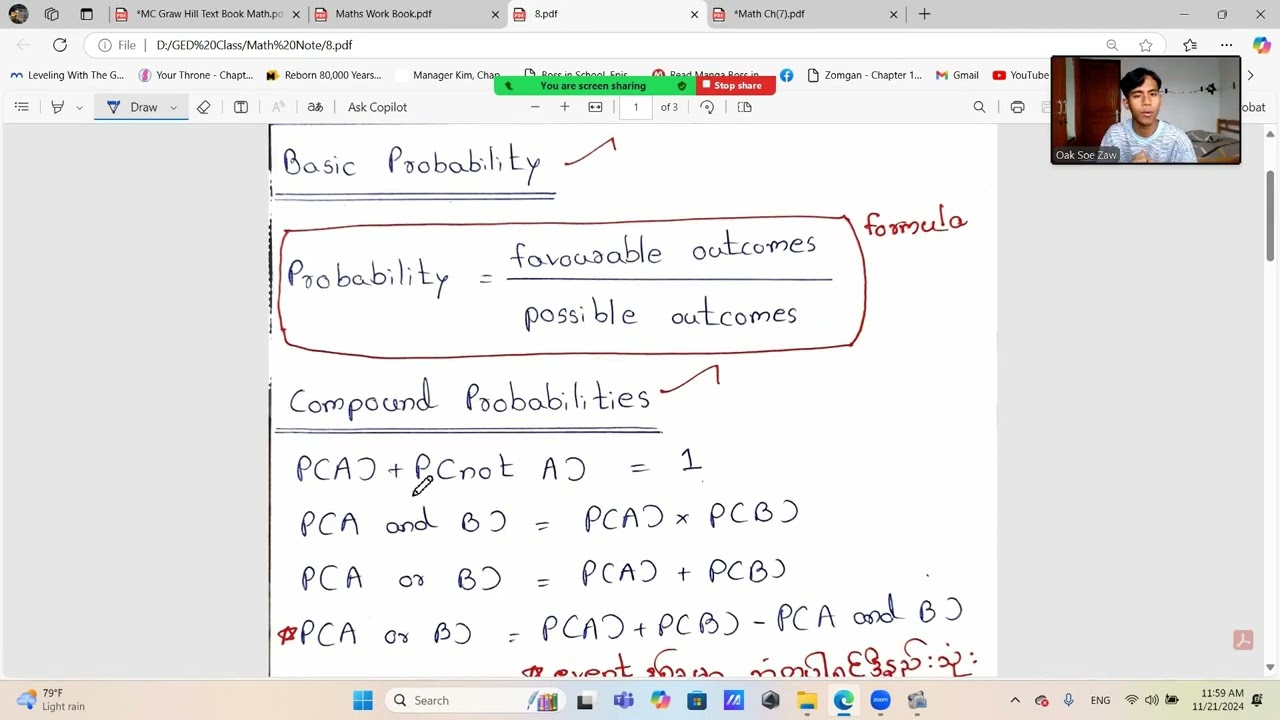 *MC Graw Hill Text Book Math.pd
Maths Work Book.pdf
8.pdf
*Math Ch(7).pdf
File
D:/GED%20Class/Math%20Note/8.pdf
Leveling With The G...
Your Throne - Chapt...
Reborn 80,000 Years...
Manager Kim, Chap
Boss in School, Epis
Read Manga Boss in
Zomgan - Chapter 1...
Gmail
YouTube
You are screen sharing
Stop share
Draw
Ask Copilot
1 of 3
obat
Oak Soe Zaw
Basic Probability
formula
Probability = favourable outcomes
possible outcomes
Compound Probabilities
P(A) + P(not A) = 1
P(A and B) = P(A) × P(B)
P(A or B) = P(A) + P(B)
*P(A or B) = P(A) + P(B) - P(A and B)
* event
79°F
Light rain
Search
zoom
ENG
11:59 AM
11/21/2024